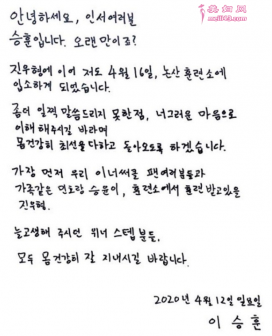 안녕하세요, 인서여러분
승훈입니다. 오랜만이죠?
진우형에 이어 저도 4월 16일, 논산 훈련소에
입소하게 되었습니다.
좀더 일찍 말씀드리지 못한점, 너그러운 마음으로
이해 해주시길 바라며
몸건강히 최선을 다하고 돌아오도록 하겠습니다.
가장 먼저 우리 이너써클 팬여러분들과
가족같은 멘토랑 승윤이, 훈련소에서 훈련 받고있을
진우형.
늘고생해 주시던 위너 스텝분들,
모두 몸건강히 잘 지내시길 바랍니다.
2020년 4월 12일 일요일
이 승 훈